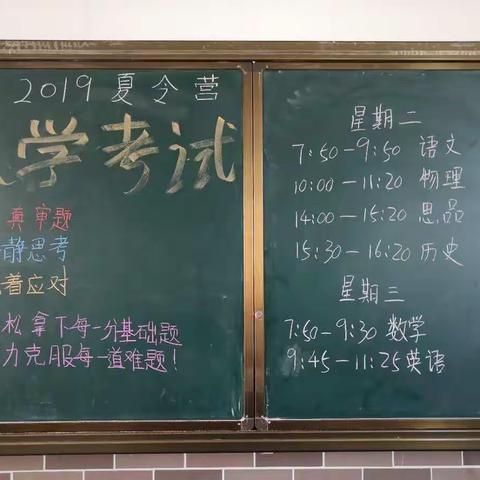 2019夏令营
学考试
真审题
静思考
着应对
松拿下每一分基础题
力克服每一道难题!
星期二
7:50-9:50 语文
10:00-11:20 物理
14:00-15:20 思品
15:30-16:20 历史
星期三
7:50-9:30 数学
9:45-11:25 英语